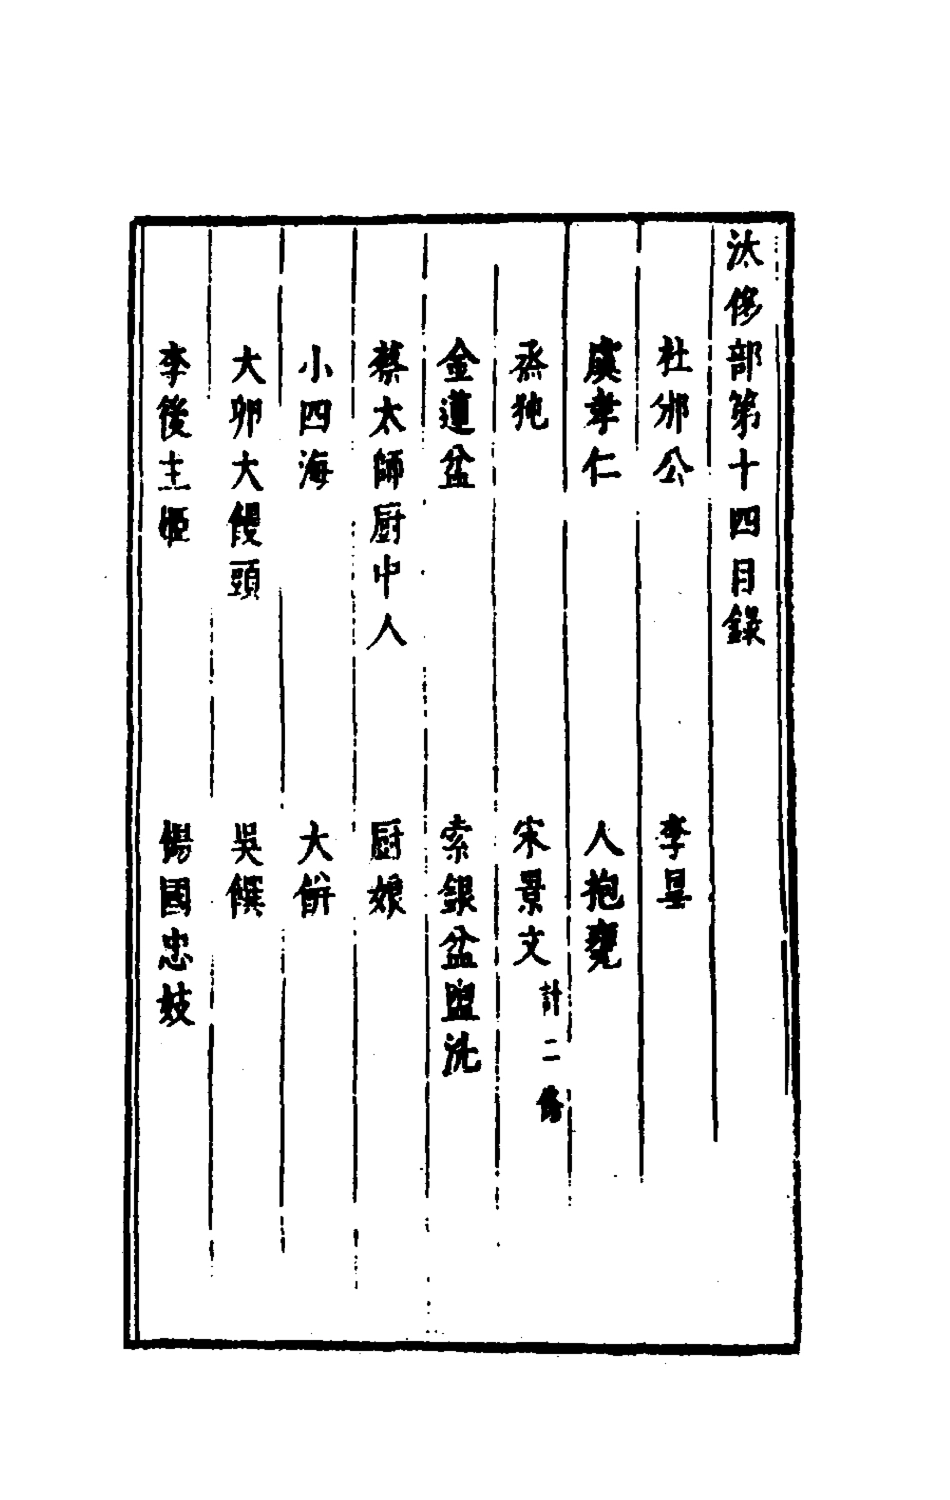 汰侈部第十四目錄
杜邠公 李昱
虞孝仁 人抱甕
烝㹠 宋景文計二條
金蓮盆 索銀盆盥洗
蔡太師厨中人 厨娘
小四海 大餅
大卵大饅頭 吳饌
李後主姬 楊國忠妓